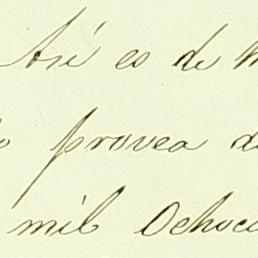 Así es de
provea
mil Ochoci